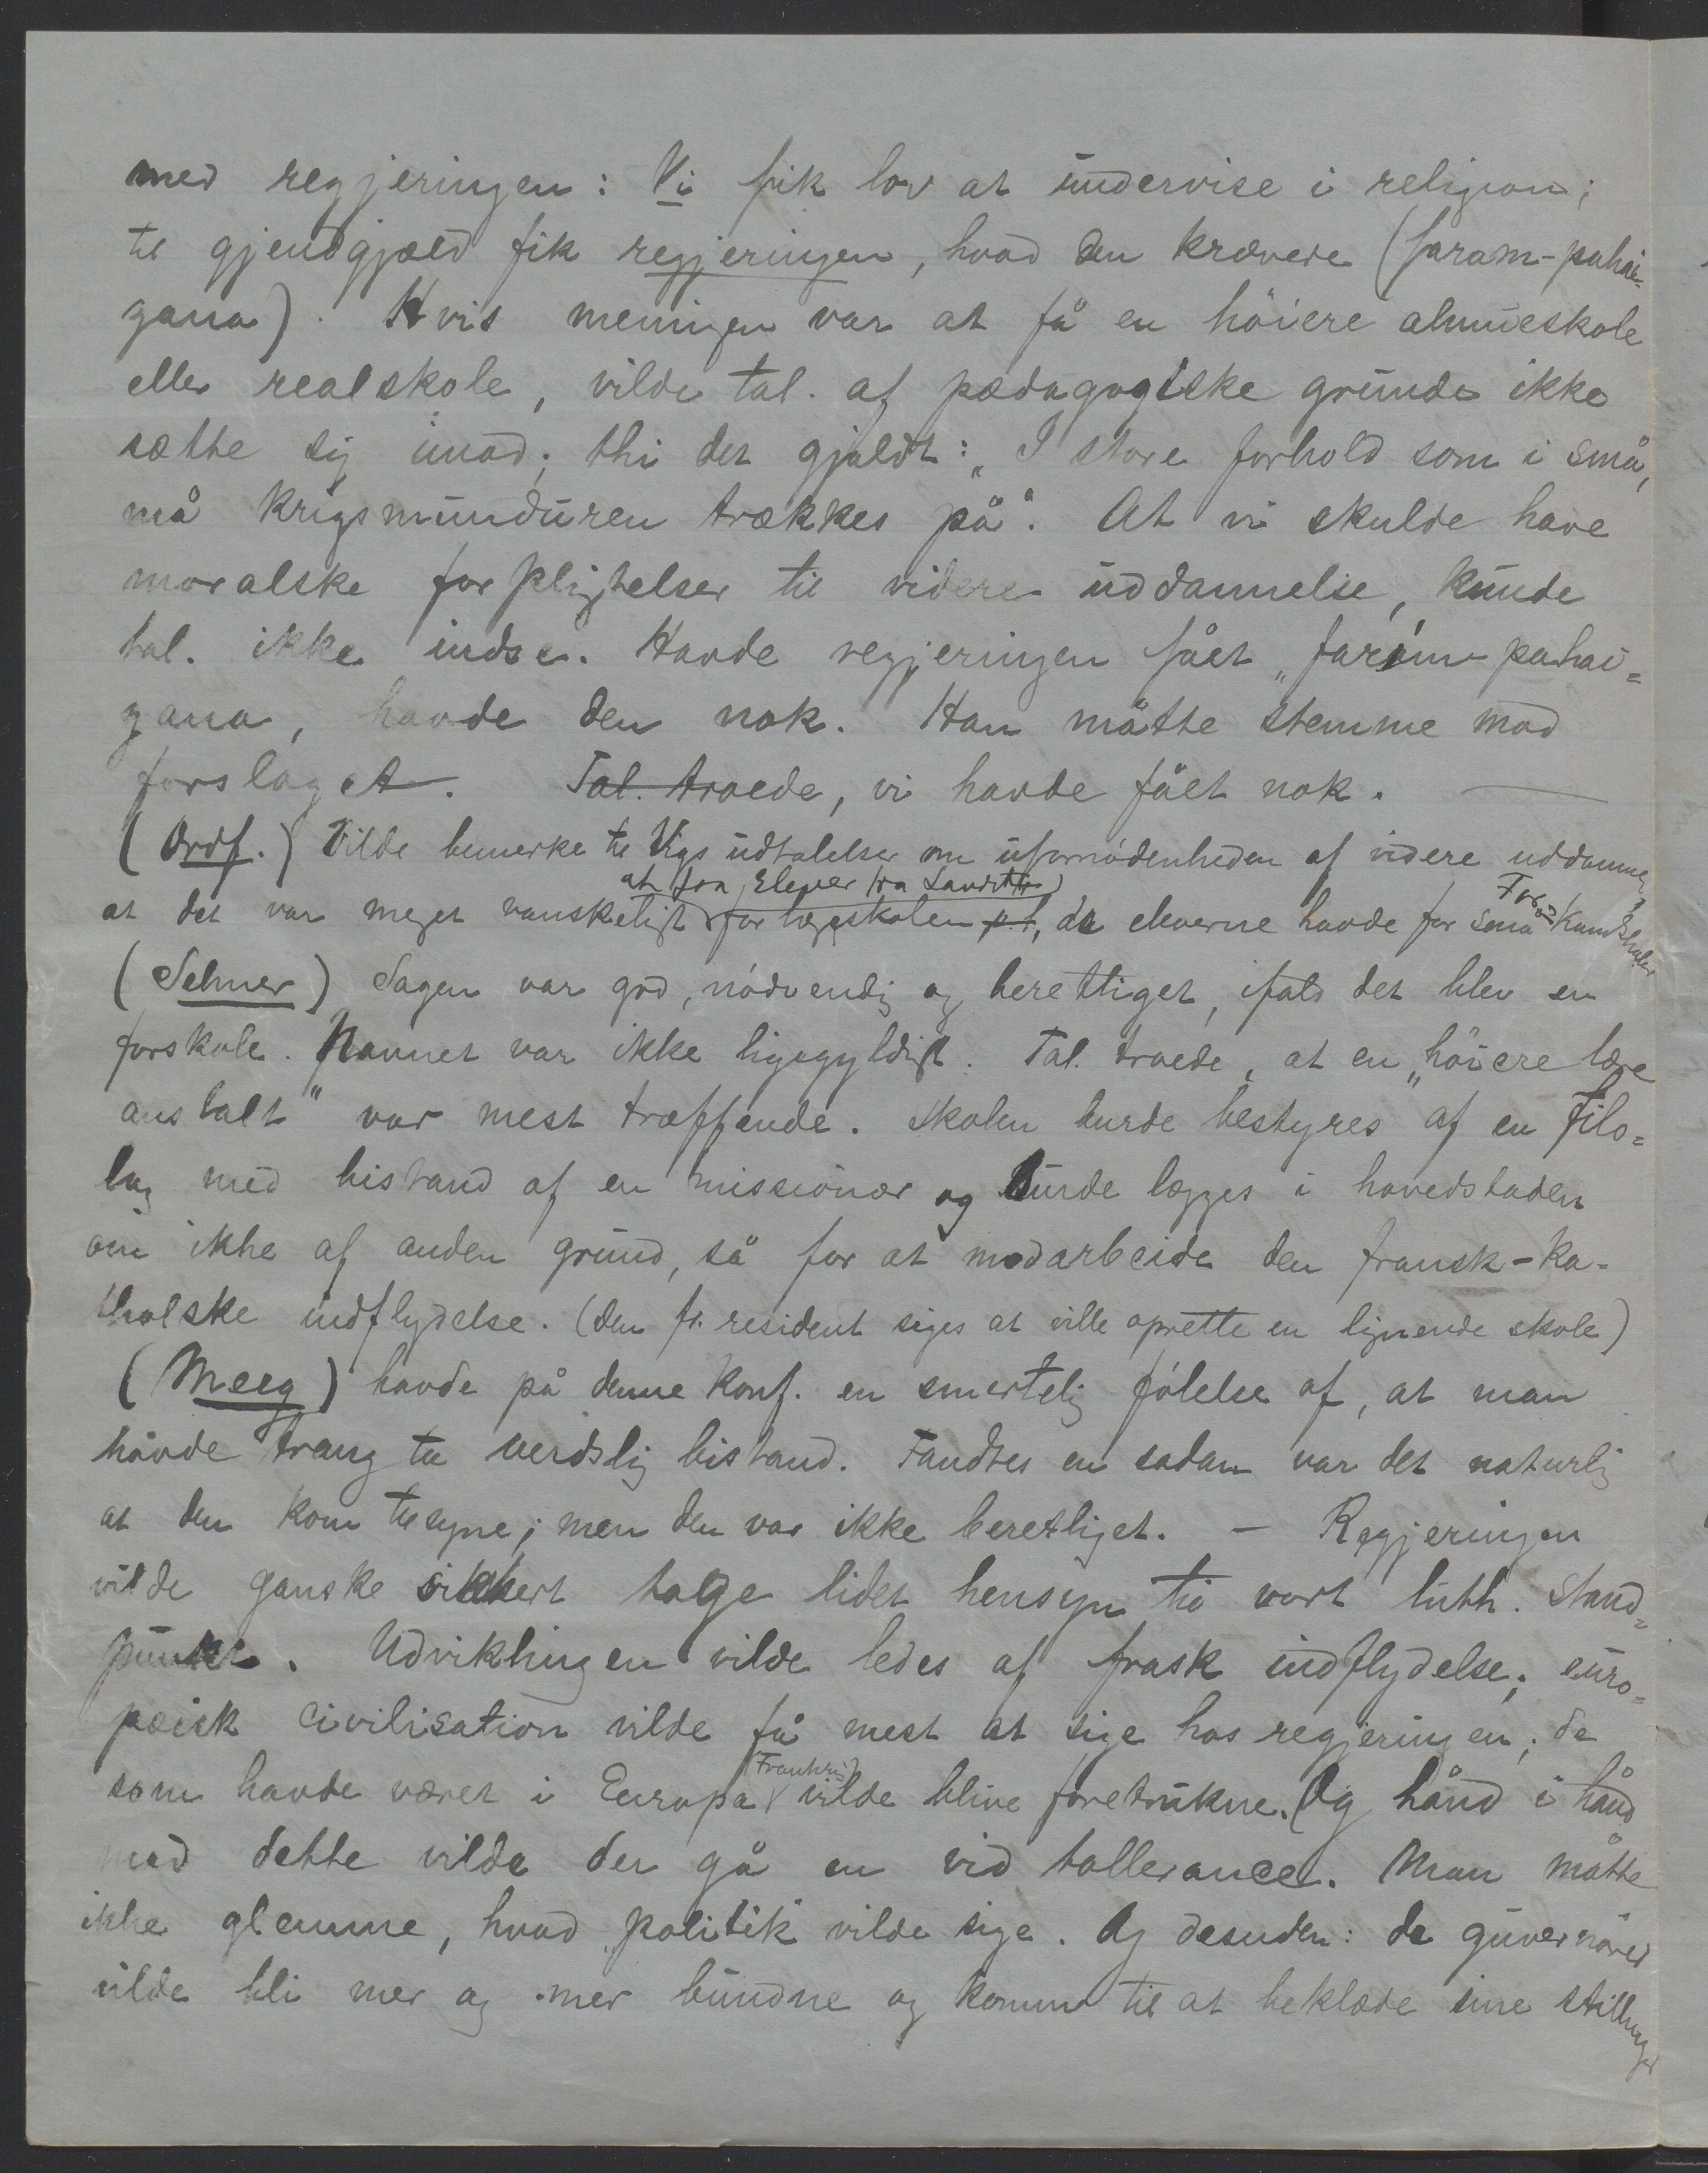 med regjeringen: Vi fik lov at undervise i religion;
til gjendgjæld fik regjeringen, hvad den krævede (faram-pahai-
zana). Hvis meningen var at få en höiere almueskole
eller realskole, vilde tal. af pædagogiske grunde ikke
sætte sig imod; thi det gjaldt: "I store forhold som i små,
må krigsmunduren trækkes på". At vi skulde have
moralske forpligtelser til videre uddannelse, kunde
tal. ikke indse. Havde regjeringen fået "farim-pahai=
zana, havde den nok. Han måtte stemme mod
forslaget. Tal. troede, vi havde fået nok.
(Ordf.) Vilde bemerke til Vigs udtalelser om ufornödenheden af videre uddannelse,
at faa Elever fra Landet
at det var meget vanskeligt for lægeskolen, da eleverne havde for små Forkundskaber
(Selmer) Sagen var god, nödvendig og berettiget, ifald det blev en
forskole. Navnet var ikke ligegyldigt. Tal. troede, at en "höiere lære
anstalt" var mest træffende. Skolen burde bestyres af en filo=
log med bistand af en missionær og burde lægges i hovedstaden
om ikke af anden grund, så for at modarbeide den fransk-ka-
tholske indflydelse. (den fr. resident siges at ville oprette en lignende skole)
(Meeg) havde på denne konf. en smertelig fölelse af, at man
havde trang til verdslig bistand. Fandtes en sadan var det naturlig
at den kom tilsyne; men den var ikke berettiget. — Regjeringen
vilde ganske sikkert tage lidet hensyn til vort luth. stand=
punkt. Udviklingen vilde ledes af frask indflydelse; euro=
pæisk civilisation vilde få mest at sige hos regjeringen; de
som havde været i Europa (Frankrig) vilde blive foretrukne. Og hånd i hånd
med dette vilde der gå en vid tollerance. Man måtte
ikke glemme, hvad politik vilde sige. Og desuden: de guvernörer
vilde bli mer og mer bundne og komme til at beklæde sine stillinger